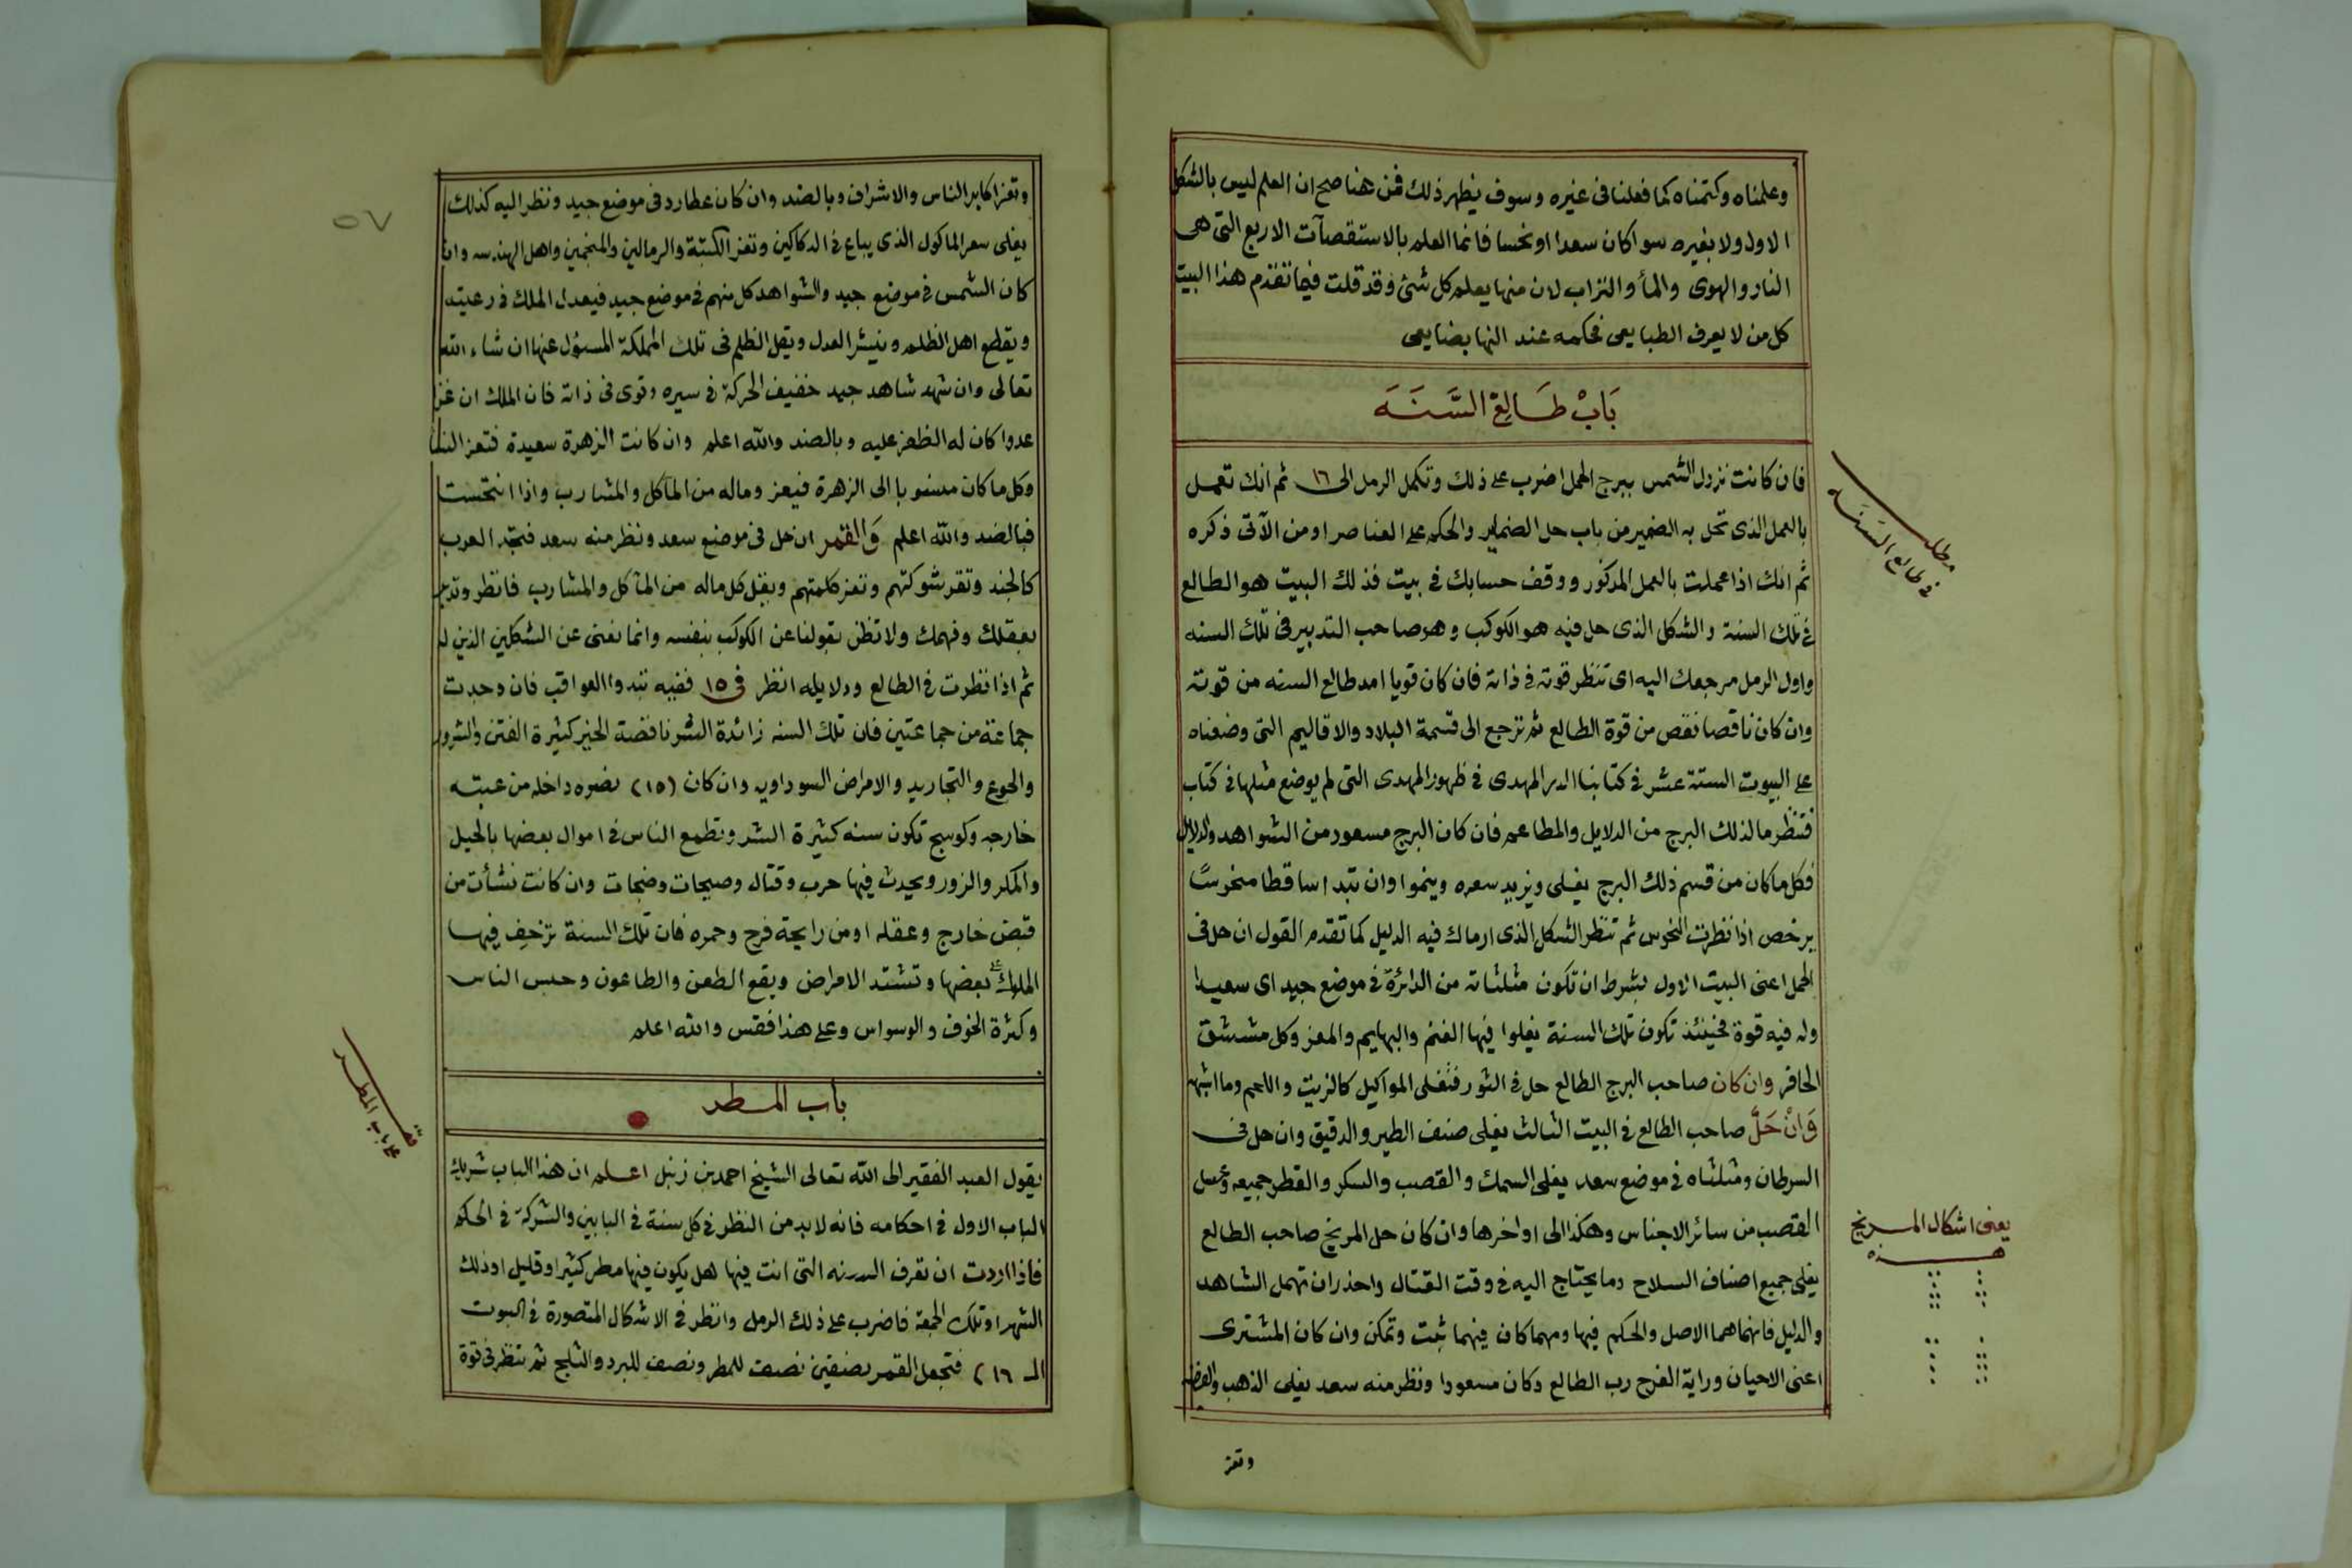 وعلمناه وكتمناه كما فعلنا فى غيره وسوف يظهر ذلك فمن هنا صح ان العلم ليس بالشكل
الاول ولا بغيره سوا كان سعدا او نحسا فانما العلم بالاستقصآت الاربع التى هى
النار والهوى والمأ والتراب لان منها يعلم كل شئ وقد قلت فيما تقدم هذا البيت
كل من لا يعرف الطبايعى فحكمه عند النها بضايعى
بَابْ طَالِعْ السَّنَةَ
فان كانت نزول الشمس ببرج الحمل اضرب على ذلك وتكمل الرمل الى ١٦ ثم انك تعمل
بالعمل الذى تحل به الضمير من باب حل الضماير والحكم على العناصر او من الآتى ذكره
ثم انك اذا عملت بالعمل المذكور ووقف حسابك فى بيت فذلك البيت هو الطالع
فى تلك السنة والشكل الذى حل فيه هو الكوكب وهو صاحب التدبير فى تلك السنه
واول الرمل مرجعك اليه اى تنظر قوته فى ذاته فان كان قويا امد طالع السنه من قوته
وان كان ناقصا نقص من قوة الطالع ثم ترجع الى قسمة البلاد والاقاليم التى وضعناه
على البيوت الستة عشر فى كتابنا الدر المهدى فى ظهور المهدى التى لم يوضع مثلها فى كتاب
فتنظر ما لذلك البرج من الدلايل والمطاعم فان كان البرج مسعود من الشواهد والدلايل
فكل ما كان من قسم ذلك البرج يغلى ويزيد سعره وينموا وان تبدا ساقطا منحوسًا
يرخص اذا نظرت النحوس ثم تنظر الشكل الذى ارماك فيه الدليل كما تقدم القول ان حل فى
الحمل اعنى البيت الاول بشرط ان تكون مثلثاته من الدائرة فى موضع جيد اى سعيدا
وله فيه قوة فحينئذ تكون تلك السنة يغلوا فيها الغنم والبهايم والمعز وكل مشقق
الحافر وان كان صاحب البرج الطالع حل فى الثور فتغلى المواكيل كالزيت واللحم وما اشبه
وَانْ حَلَّ صاحب الطالع فى البيت الثالث يغلى صنف الطير والدقيق وان حل فى
السرطان ومثلثاه فى موضع سعد يغلى السمك والقصب والسكر والقطر جميعه وعسل
القصب من سائر الاجناس وهكذا الى اواخرها وان كان حل المريخ صاحب الطالع
يغلى جميع اصناف السلاح وما يحتاج اليه فى وقت القتال واحذر ان تهمل الشاهد
والدليل فانهما هما الاصل والحكم فيها ومهما كان فيهما ثبت وتمكن وان كان المشترى
اعنى الاحيان وراية الفرح رب الطالع وكان مسعودا ونظر منه سعد يغلى الذهب والفضه
وتعز
مطلب
فى طالع السَنَة
يعنى اشكال المريخ
هذه
٥٧
وتعز اكابر الناس والاشراف وبالضد وان كان عطارد فى موضع جيد ونظر اليه كذلك
يغلى سعر الماكول الذى يباع فى الدكاكين وتعز الكتبة والرمالين والمنجمين واهل الهندسه وان
كان الشمس فى موضع جيد والشواهد كل منهم فى موضع جيد فيعدل الملك فى رعيته
ويقطع اهل الظلم وينشر العدل ويقل الظلم فى تلك المملكة المسئول عنها ان شاء الله
تعالى وان شهد شاهد جيد خفيف الحركة فى سيره وقوى فى ذاته فان الملك ان غزا
عدوا كان له الظفر عليه وبالضد والله اعلم وان كانت الزهرة سعيدة فتعز النسا
وكل ما كان منسوبا الى الزهرة فيعز وماله من المآكل والمشارب واذا انتحست
فبالضد والله اعلم وَالقمر ان حل فى موضع سعد ونظر منه سعد فتجد العرب
كالجند وتقر شوكتهم وتعز كلمتهم ويقبل كل ماله من المآكل والمشارب فانظر وتدبر
بعقلك وفهمك ولا تظن بقولنا عن الكوكب بنفسه وانما نعنى عن الشكلين الذين له
ثم اذا نظرت فى الطالع ودلايله انظر فى ١٥ ففيه تبدوا العواقب فان وجدت
جماعة من جماعتين فان تلك السنه زائدة الشر ناقصة الخير كثيرة الفتن والشرور
والجوع والتجاريد والامراض السوداويه وان كان (١٥) نصره داخله من عتبته
خارجه وكوسج تكون سنه كثيرة الشر وتطمع الناس فى اموال بعضها بالحيل
والمكر والزور ويحدث فيها حرب وقتال وصيحات وضجات وان كانت نشأت من
قبض خارج وعقله او من راية فرح وحمره فان تلك السنة تزحف فيها
الملوك على بعضها وتشتد الامراض ويقع الطعن والطاعون وحبس الناس
وكثرة الخوف والوسواس وعلى هذا فقس والله اعلم
باب المطر
يقول العبد الفقير الى الله تعالى الشيخ احمد بن زنبل اعلم ان هذا الباب شريك
الباب الاول فى احكامه فانه لابد من النظر فى كل سنة فى البابين والشركة فى الحكم
فاذا اردت ان تعرف السنه التى انت فيها هل يكون فيها مطر كثير او قليل او ذلك
الشهر او تلك الجمعة فاضرب على ذلك الرمل وانظر فى الاشكال المتصورة فى البيوت
الـ ١٦) فتجعل القمر نصفين نصف للمطر ونصف للبرد والثلج ثم تنظر فى قوة
باب المطر